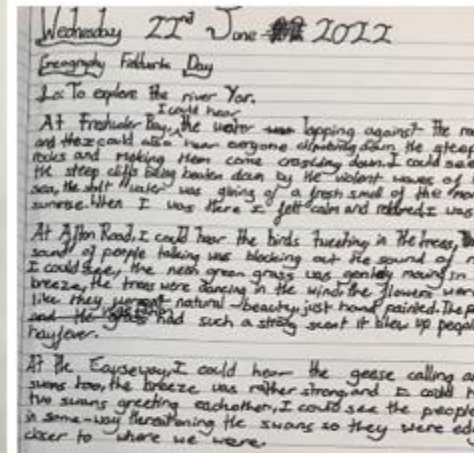 Wednesday 22nd June 2022
Geography Fieldwork Day
Lo: To explore the river Yar.
I could hear
At Freshwater Bay, the water lapping against the
and the I could also hear everyone climbing down the steep
rocks and making them come crashing down. I could see
the steep cliffs being beaten down by the violent waves of
sea, the salt water was giving of a fresh smell of the
sunrise. When I was there I felt calm and I
At Afton Road, I could hear the birds tweeting in the trees,
sound of people talking was blocking out the sound of
I could see, the neon green grass was gently moving in
breeze, the trees were dancing in the wind, the flowers
like they natural beauty, just hand painted. The
and the grass had such a strong scent it blew up
hayfever.
At the Causeway, I could hear the geese calling
swans too, the breeze was rather strong, and I could
two swans greeting eachother, I could see the people
in some-way threatening the swans so they were
closer to where we were.